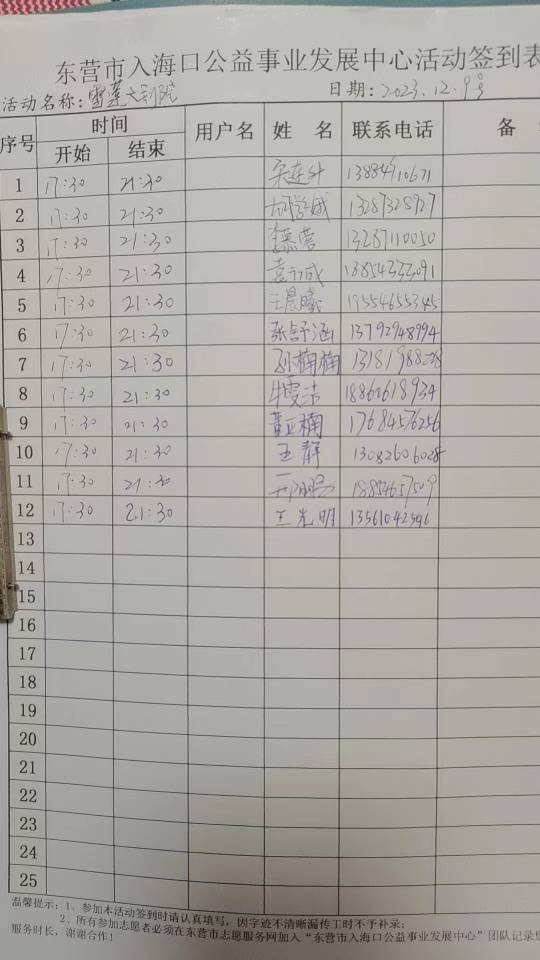 东营市入海口公益事业发展中心活动签到表
活动名称：雪莲大剧院 日期：2023.12.9号
序号 时间 用户名 姓 名 联系电话 备
开始 结束
1 17:30 21:30 宋连升
2 17:30 21:30 13287328927
3 17:30 21:30 13287110050
4 17:30 21:30 袁立成 18854333091
5 17:30 21:30 王晨曦 19554655345
6 17:30 21:30 张舒涵 13792948994
7 17:30 21:30 孙楠楠
8 17:30 21:30 牛雯洁 18860618934
9 17:30 21:30 董亚楠 17684576256
10 17:30 21:30 王静 13082606028
11 17:30 21:30 18854657509
12 17:30 21:30 王光明 13561042596
13
14
15
16
17
18
19
20
21
22
23
24
25
温馨提示：1、参加本活动签到时请认真填写，因字迹不清晰漏传工时不予补录；
2、所有参加志愿者必须在东营市志愿服务网加入“东营市入海口公益事业发展中心”团队记录
服务时长，谢谢合作！